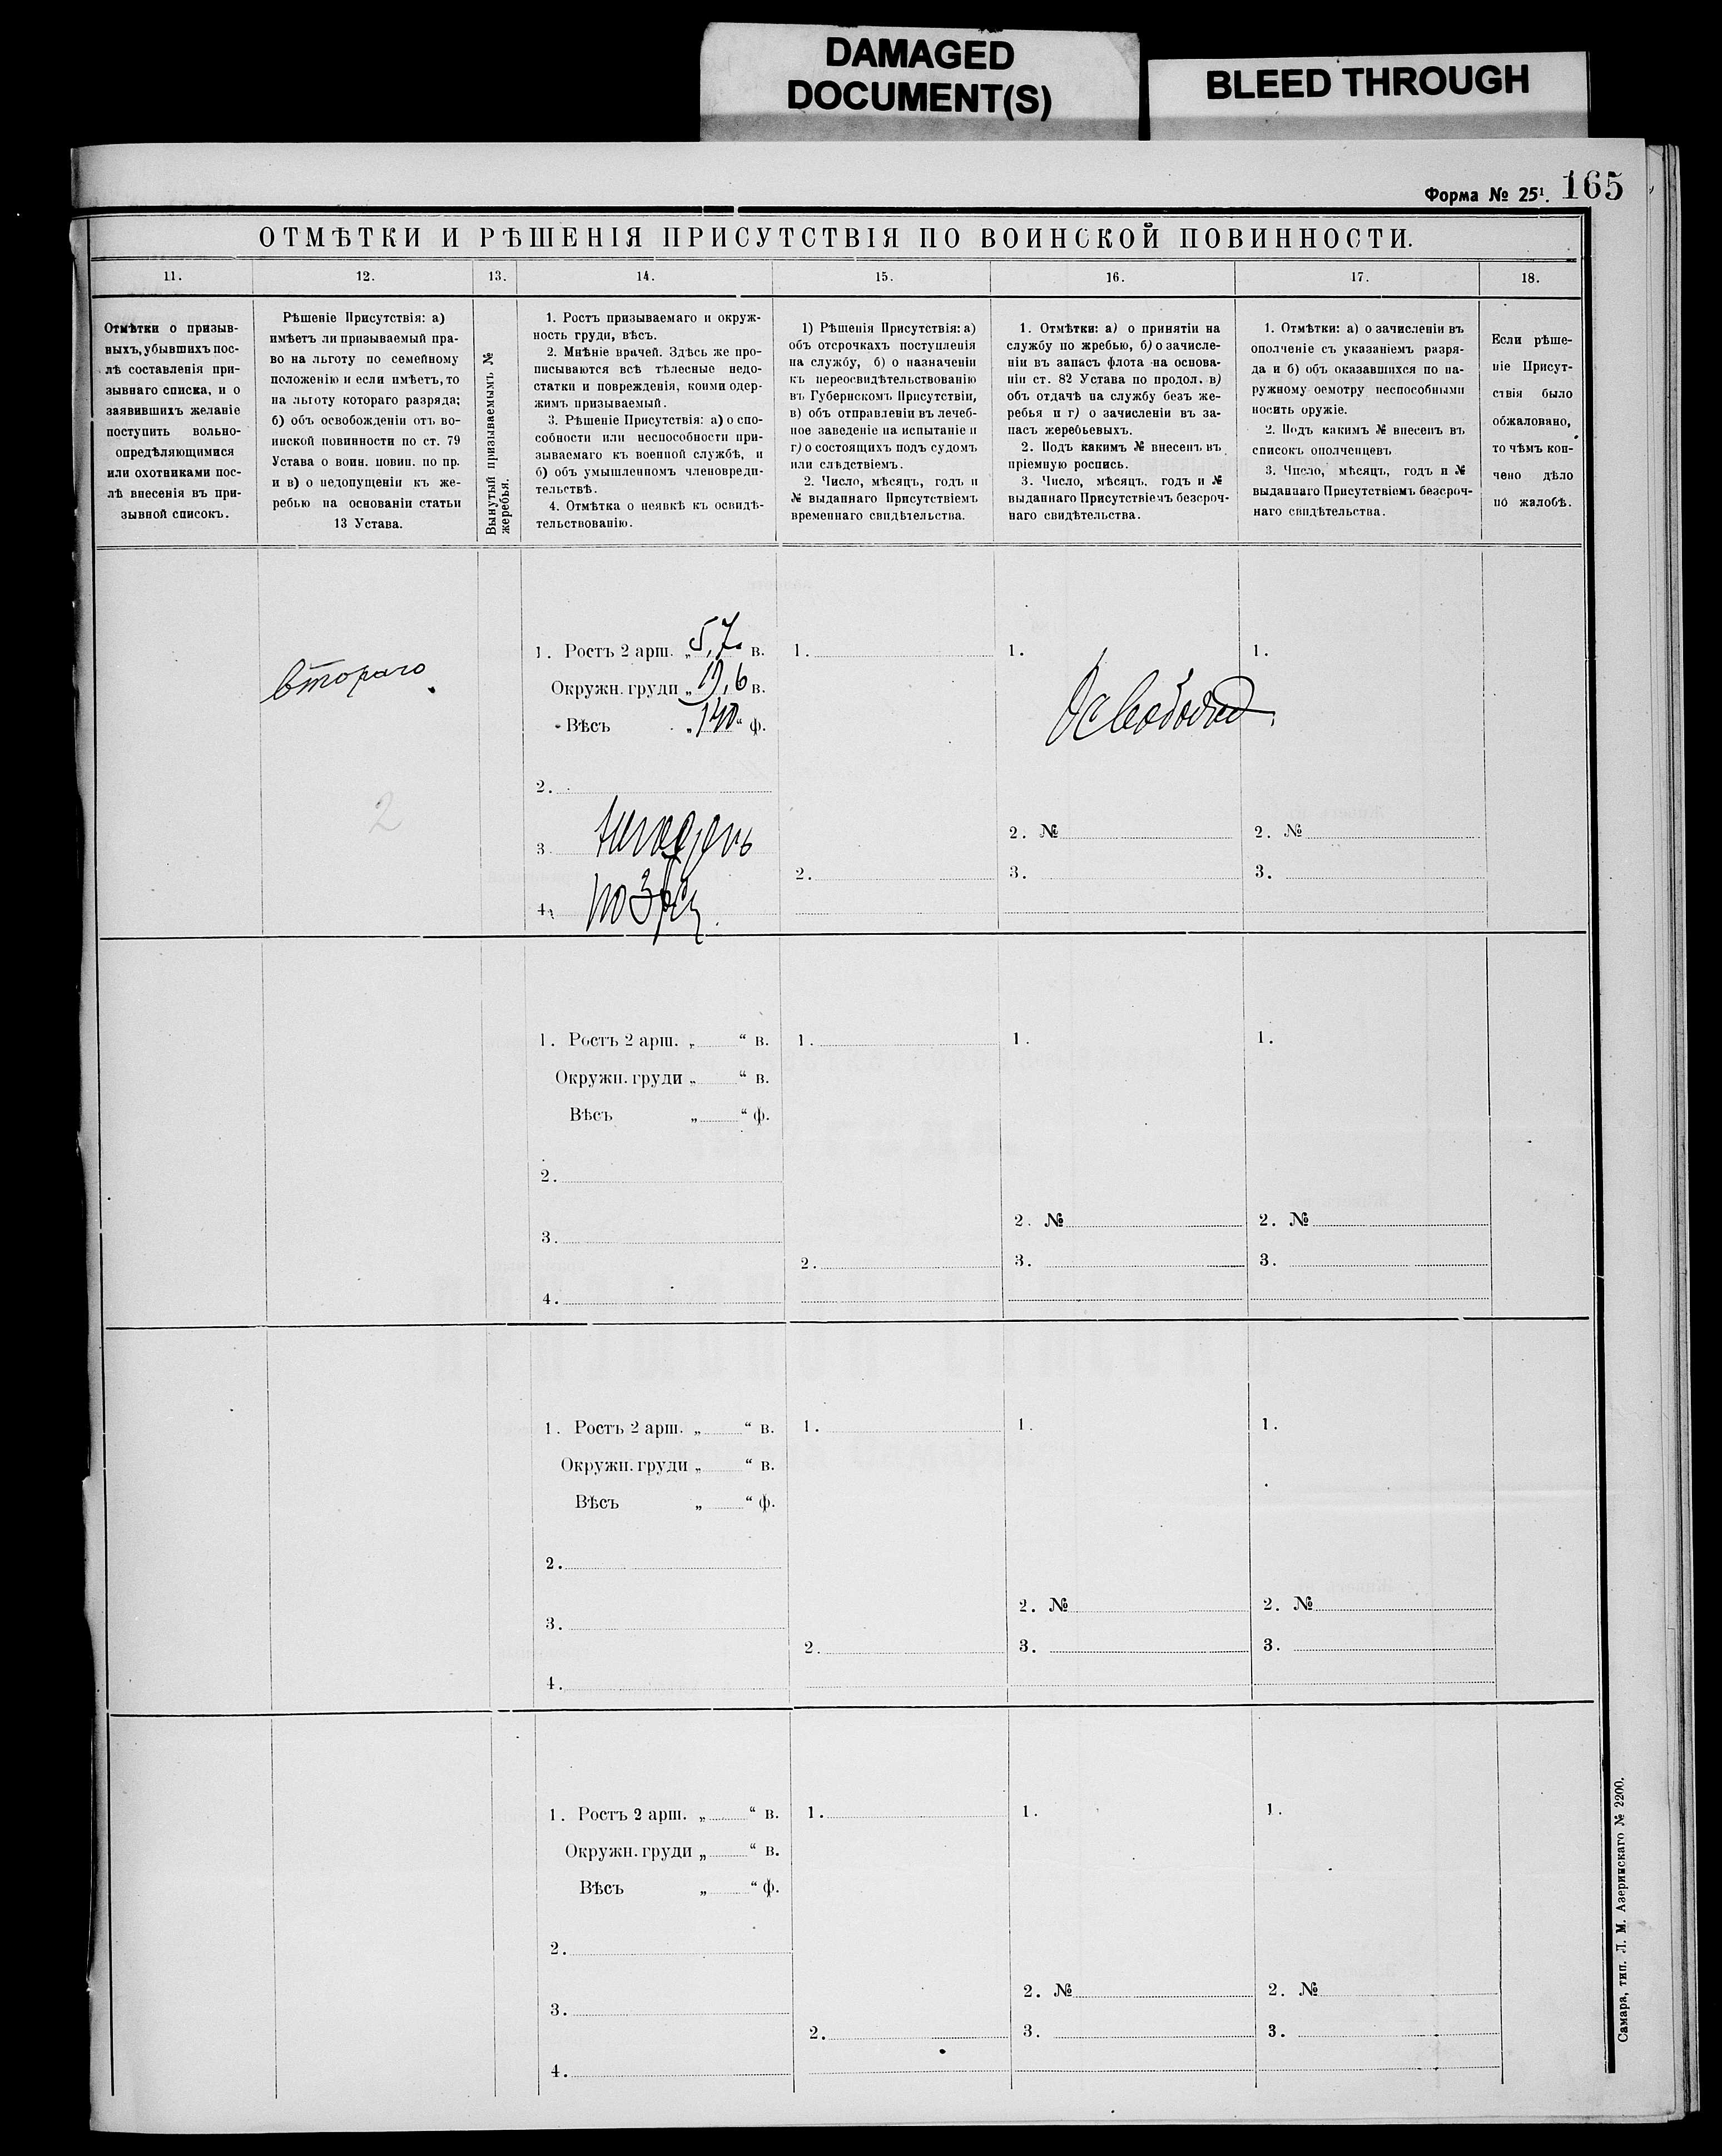 DAMAGED
DOCUMENT(S)
BLEED THROUGH
Форма № 25¹. 165
ОТМѢТКИ И РѢШЕНІЯ ПРИСУТСТВІЯ ПО ВОИНСКОЙ ПОВИННОСТИ.
11. 12. 13. 14. 15. 16. 17. 18.
Отмѣтки о призыв-
ныхъ, убывшихъ пос-
лѣ составленія при-
зывнаго списка, и о
заявившихъ желаніе
поступить вольно-
опредѣляющимися
или охотниками пос-
лѣ внесенія въ при-
зывной списокъ.
Рѣшеніе Присутствія: а)
имѣетъ ли призываемый пра-
во на льготу по семейному
положенію и если имѣетъ, то
на льготу котораго разряда;
б) объ освобожденіи отъ во-
инской повинности по ст. 79
Устава о воин. повин. по пр.
и в) о недопущеніи къ же-
ребью на основаніи статьи
13 Устава.
Вынутый призываемымъ №
жеребья.
1. Ростъ призываемаго и окруж-
ность груди, вѣсъ.
2. Мнѣніе врачей. Здѣсь же про-
писываются всѣ тѣлесные недо-
статки и поврежденія, коими одер-
жимъ призываемый.
3. Рѣшеніе Присутствія: а) о спо-
собности или неспособности при-
зываемаго къ военной службѣ, и
б) объ умышленномъ членовреди-
тельствѣ.
4. Отмѣтка о неявкѣ къ освидѣ-
тельствованію.
1) Рѣшенія Присутствія: а)
объ отсрочкахъ поступленія
на службу, б) о назначеніи
къ переосвидѣтельствованію
въ Губернскомъ Присутствіи,
в) объ отправленіи въ лечеб-
ное заведеніе на испытаніе и
г) о состоящихъ подъ судомъ
или слѣдствіемъ.
2. Число, мѣсяцъ, годъ и
№ выданнаго Присутствіемъ
временнаго свидѣтельства.
1. Отмѣтки: а) о принятіи на
службу по жребью, б) о зачисле-
ніи въ запасъ флота на основа-
ніи ст. 82 Устава по продол. в)
объ отдачѣ на службу безъ же-
ребья и г) о зачисленіи въ за-
пасъ жеребьевыхъ.
2. Подъ какимъ № внесенъ въ
пріемную роспись.
3. Число, мѣсяцъ, годъ и №
выданнаго Присутствіемъ безсроч-
наго свидѣтельства.
1. Отмѣтки: а) о зачисленіи въ
ополченіе съ указаніемъ разря-
да и б) объ оказавшихся по на-
ружному осмотру неспособными
носить оружіе.
2. Подъ какимъ № внесенъ въ
списокъ ополченцевъ
3. Число, мѣсяцъ, годъ и №
выданнаго Присутствіемъ безсроч-
наго свидѣтельства.
Если рѣше-
ніе Присут-
ствія было
обжаловано,
то чѣмъ кон-
чено дѣло
по жалобѣ.
втораго
2
1. Ростъ 2 арш. „ 5,7 " в.
Окружн. груди „ 19,6 в.
Вѣсъ „ 140 " ф.
2.
3
4.
1.
2.
1.
Освобожд.
2. №
3.
1.
2. №
3.
1. Ростъ 2 арш. „ “ в.
Окружн. груди „ “ в.
Вѣсъ „ “ ф.
2.
3.
4.
1.
2.
1.
2. №
3.
1.
2. №
3.
1. Ростъ 2 арш. „ “ в.
Окружн. груди „ “ в.
Вѣсъ „ “ ф.
2.
3.
4.
1.
2.
1.
2. №
3.
1.
2. №
3.
1. Ростъ 2 арш. „ “ в.
Окружн. груди „ “ в.
Вѣсъ „ “ ф.
2.
3.
4.
1.
2.
1.
2. №
3.
1.
2. №
3.
Самара, тип. Л. М. Азеринскаго № 2200.